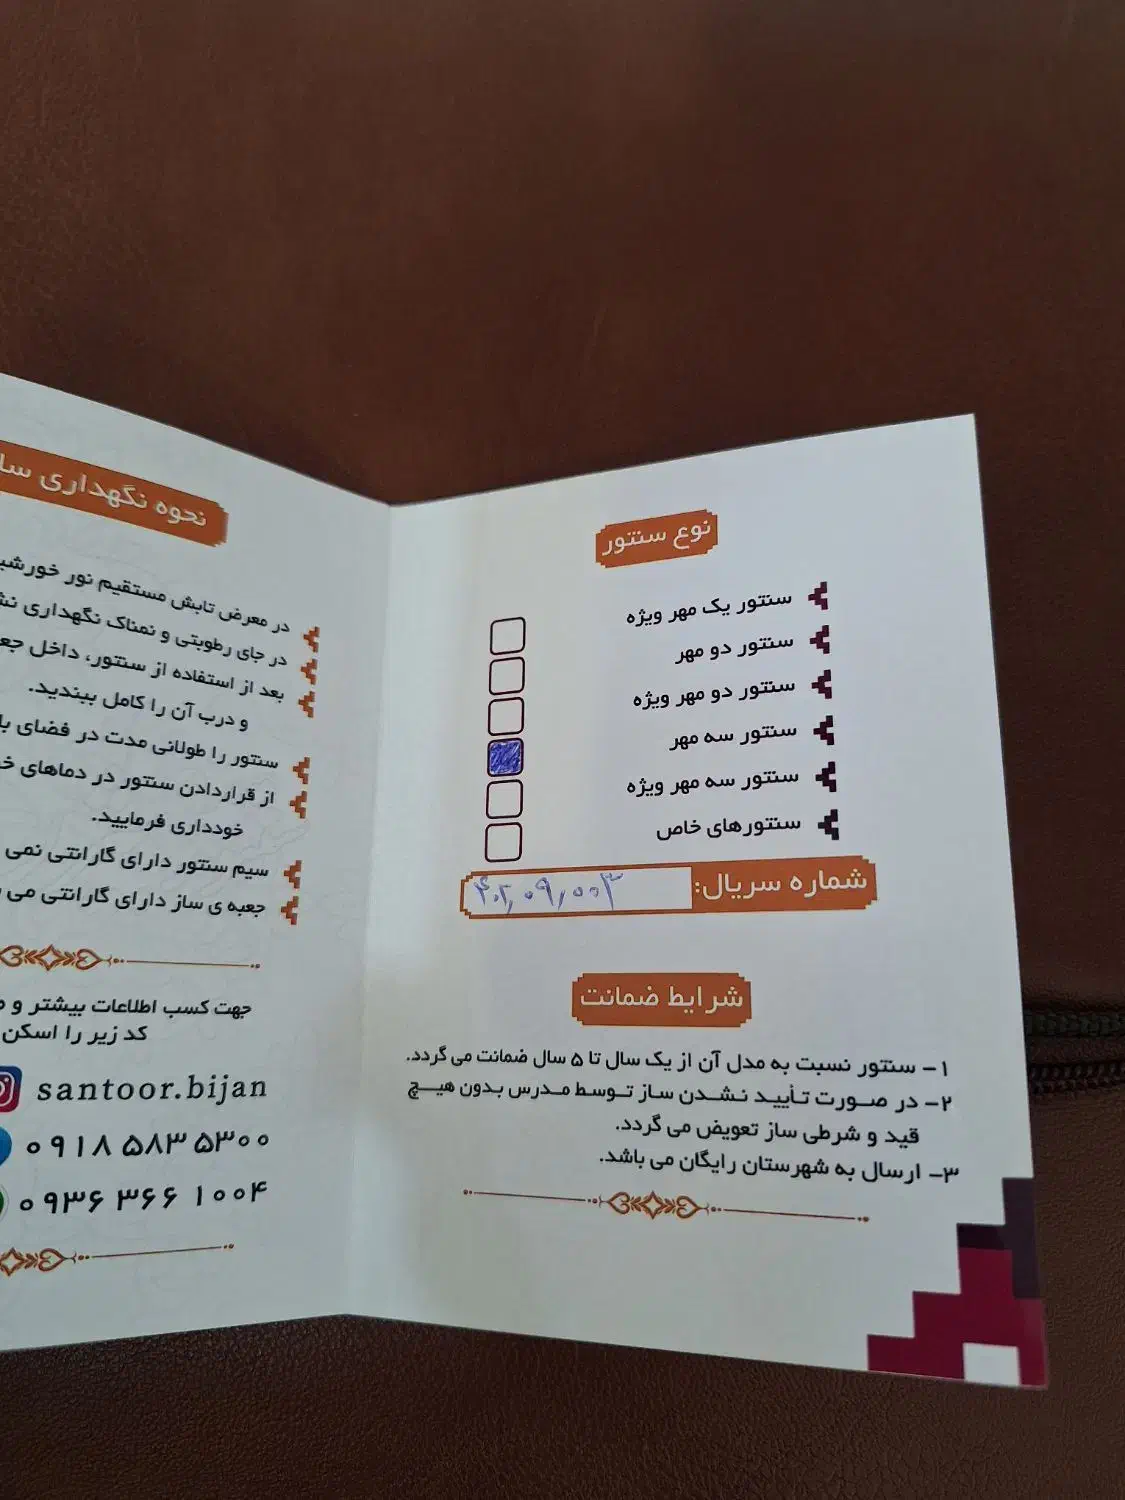 نوع سنتور
سنتور یک مهر ویژه
سنتور دو مهر
سنتور دو مهر ویژه
سنتور سه مهر
سنتور سه مهر ویژه
سنتورهای خاص
شماره سریال: ۴۰۲,۰۹,۰۰۳
شرایط ضمانت
۱- سنتور نسبت به مدل آن از یک سال تا ۵ سال ضمانت می گردد.
۲- در صورت تأیید نشدن ساز توسط مدرس بدون هیچ
قید و شرطی ساز تعویض می گردد.
۳- ارسال به شهرستان رایگان می باشد.
نحوه نگهداری
در معرض تابش مستقیم نور
در جای رطوبتی و نمناک نگهداری
بعد از استفاده از سنتور، داخل
و درب آن را کامل ببندید.
سنتور را طولانی مدت در فضای
از قراردادن سنتور در دماهای
خودداری فرمایید.
سیم سنتور دارای گارانتی نمی
جعبه ی ساز دارای گارانتی می
جهت کسب اطلاعات بیشتر و
کد زیر را اسکن
santoor.bijan
۰۹۱۸ ۵۸۳ ۵۳۰۰
۰۹۳۶ ۳۶۶ ۱۰۰۴